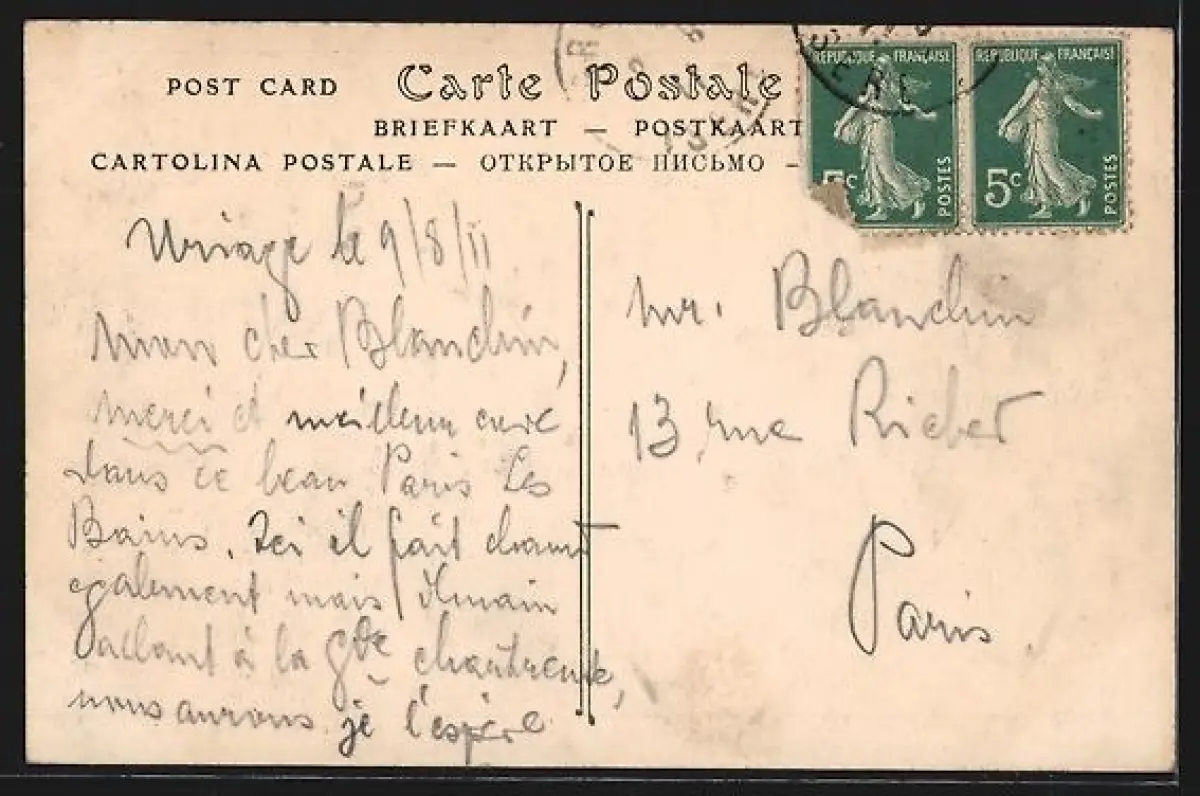 POST CARD Carte Postale
BRIEFKAART — POSTKAART
CARTOLINA POSTALE — ОТКРЫТОЕ ПИСЬМО —
REPUBLIQUE FRANÇAISE
5c
POSTES
REPUBLIQUE FRANÇAISE
5c
POSTES
Uriage le 9/8/11
Mon cher Blandin,
merci et meilleur
dans ce beau Paris Les
Bains. Ici il fait chaud
également mais demain
allant à la Gde chartreuse,
nous aurons je l'espère
Mr. Blandin
13 rue Richer
Paris